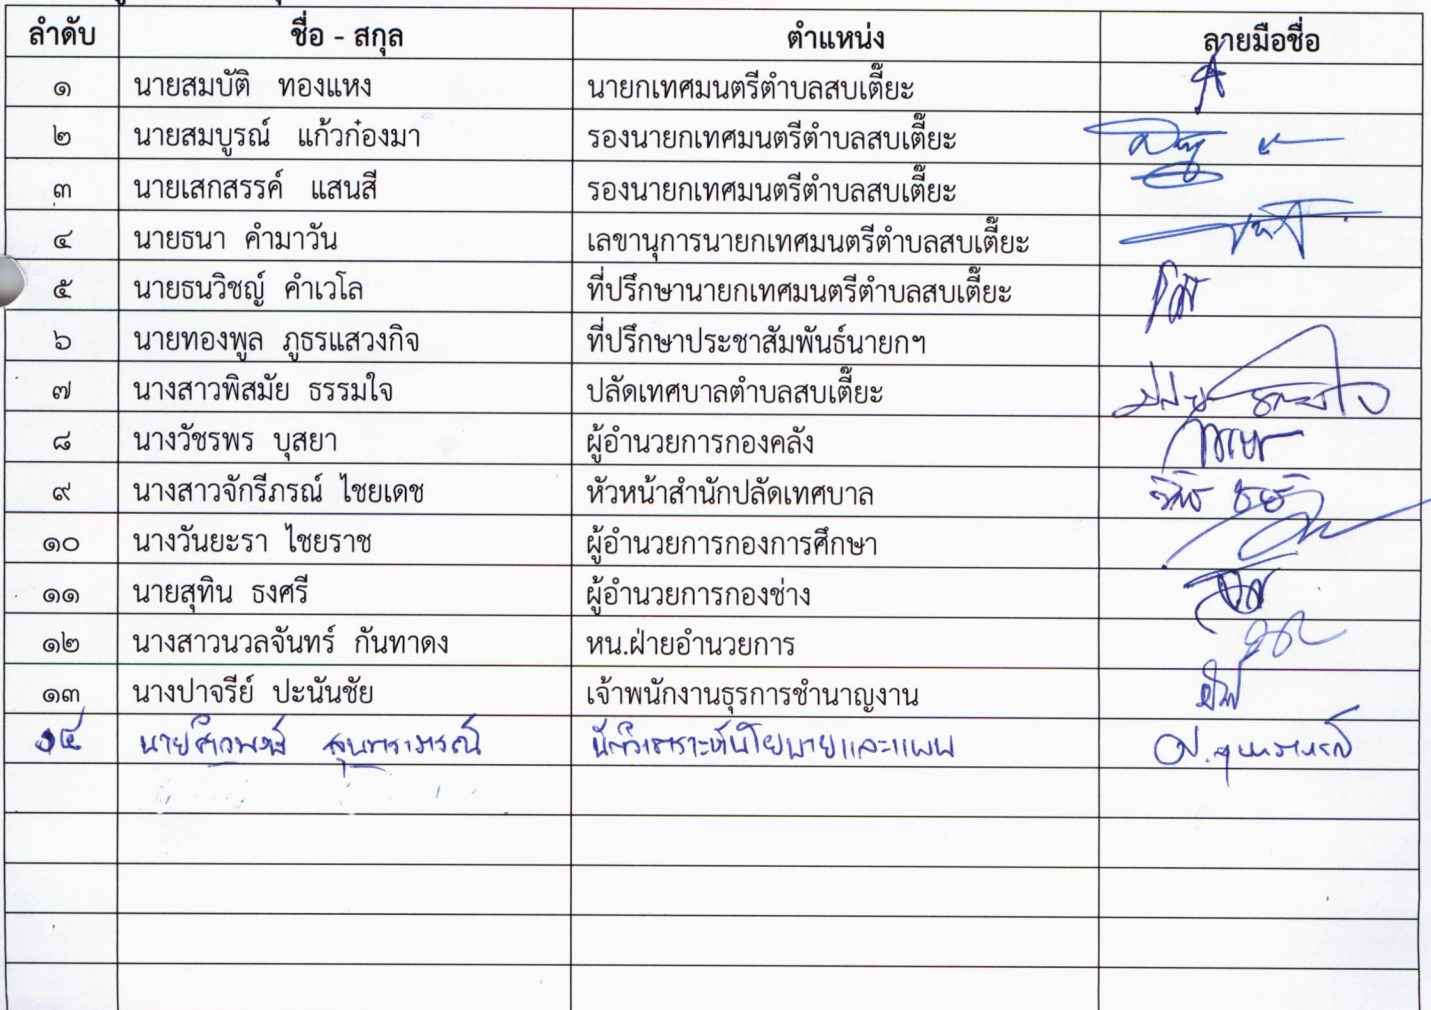 ลำดับ ชื่อ - สกุล ตำแหน่ง ลายมือชื่อ
๑ นายสมบัติ ทองแหง นายกเทศมนตรีตำบลสบเตี๊ยะ
๒ นายสมบูรณ์ แก้วก๋องมา รองนายกเทศมนตรีตำบลสบเตี๊ยะ
๓ นายเสกสรรค์ แสนสี รองนายกเทศมนตรีตำบลสบเตี๊ยะ
๔ นายธนา คำมาวัน เลขานุการนายกเทศมนตรีตำบลสบเตี๊ยะ
๕ นายธนวิชญ์ คำเวโล ที่ปรึกษานายกเทศมนตรีตำบลสบเตี๊ยะ
๖ นายทองพูล ภูธรแสวงกิจ ที่ปรึกษาประชาสัมพันธ์นายกฯ
๗ นางสาวพิสมัย ธรรมใจ ปลัดเทศบาลตำบลสบเตี๊ยะ
๘ นางวัชรพร บุสยา ผู้อำนวยการกองคลัง
๙ นางสาวจักรีภรณ์ ไชยเดช หัวหน้าสำนักปลัดเทศบาล
๑๐ นางวันยะรา ไชยราช ผู้อำนวยการกองการศึกษา
๑๑ นายสุทิน ธงศรี ผู้อำนวยการกองช่าง
๑๒ นางสาวนวลจันทร์ กันทาดง หน.ฝ่ายอำนวยการ
๑๓ นางปาจรีย์ ปะนันชัย เจ้าพนักงานธุรการชำนาญงาน
๑๔ นายศิวพงษ์ สุนทราภรณ์ นักวิเคราะห์นโยบายและแผน